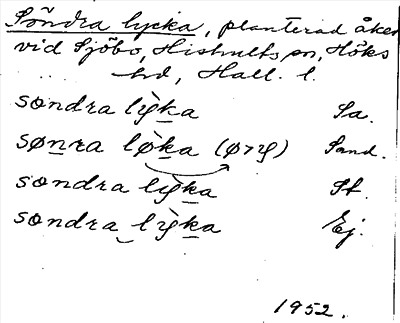 Söndra lycka, planterad åker
vid Sjöbo, Hishults sn, Höks
hd, Hall. l.
søndra lyk̲a Sa.
søn̲ra lø̀k̲a (ø>y) Sand.
søndra lỳk̲a St.
søndra lỳk̲a Ej.
1952.